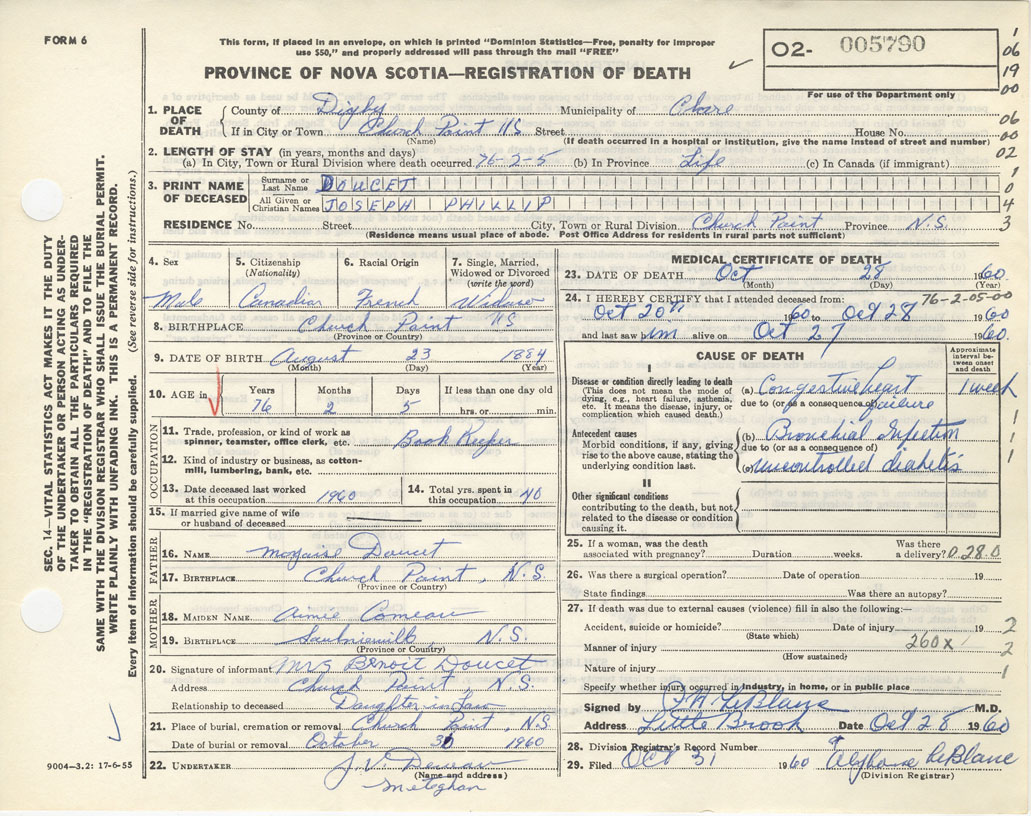 FORM 6
This form, if placed in an envelope, on which is printed "Dominion Statistics—Free, penalty for improper
use $50," and properly addressed will pass through the mail "FREE"
PROVINCE OF NOVA SCOTIA—REGISTRATION OF DEATH
02- 005790
For use of the Department only
1
06
19
00
06
00
02
1
0
4
3
1. PLACE OF DEATH
County of Digby Municipality of Clare
If in City or Town Church Point NS Street House No.
(Name) (If death occurred in a hospital or institution, give the name instead of street and number)
2. LENGTH OF STAY (in years, months and days)
(a) In City, Town or Rural Division where death occurred 76-2-5 (b) In Province Life (c) In Canada (if immigrant)
3. PRINT NAME OF DECEASED
Surname or Last Name DOUCET
All Given or Christian Names JOSEPH PHILLIP
RESIDENCE No. Street City, Town or Rural Division Church Point Province N.S.
(Residence means usual place of abode. Post Office Address for residents in rural parts not sufficient)
4. Sex
Male
5. Citizenship (Nationality)
Canadian
6. Racial Origin
French
7. Single, Married, Widowed or Divorced (write the word)
Widower
8. BIRTHPLACE Church Point NS
(Province or Country)
9. DATE OF BIRTH August 23 1884
(Month) (Day) (Year)
10. AGE in
Years Months Days If less than one day old
76 2 5 hrs. or min.
OCCUPATION
11. Trade, profession, or kind of work as
spinner, teamster, office clerk, etc. Book Keeper
12. Kind of industry or business, as cotton-
mill, lumbering, bank, etc.
13. Date deceased last worked
at this occupation 1960
14. Total yrs. spent in
this occupation 40
15. If married give name of wife
or husband of deceased
FATHER
16. NAME Doucet
17. BIRTHPLACE Church Point, N.S.
(Province or Country)
MOTHER
18. MAIDEN NAME Annie Comeau
19. BIRTHPLACE Saulnierville, N.S.
(Province or Country)
20. Signature of informant Mrs Benoit Doucet
Address Church Point, N.S.
Relationship to deceased Daughter in Law
21. Place of burial, cremation or removal Church Point, N.S
Date of burial or removal October 1960
22. UNDERTAKER J.V.
(Name and address)
Meteghan
MEDICAL CERTIFICATE OF DEATH
23. DATE OF DEATH Oct 28 1960
(Month) (Day) (Year)
24. I HEREBY CERTIFY that I attended deceased from: 76-2-05-00
Oct 20th 1960 to Oct 28 1960
and last saw him alive on Oct 27 1960.
CAUSE OF DEATH
Approximate interval between onset and death
I
Disease or condition directly leading to death
(This does not mean the mode of
dying, e.g., heart failure, asthenia,
etc. It means the disease, injury, or
complication which caused death.)
(a) Congestive heart 1 week
due to (or as a consequence of) failure
1
Antecedent causes
Morbid conditions, if any, giving
rise to the above cause, stating the
underlying condition last.
(b) Bronchial Infection 1
due to (or as consequence of) 1
(c) uncontrolled diabetis 1
II
Other significant conditions
contributing to the death, but not
related to the disease or condition
causing it.
25. If a woman, was the death
associated with pregnancy? Duration weeks. Was there a delivery? 0.28.0
26. Was there a surgical operation? Date of operation 19
State findings Was there an autopsy?
27. If death was due to external causes (violence) fill in also the following:—
Accident, suicide or homicide? Date of injury 19 2
(State which)
Manner of injury 260x 2
(How sustained)
Nature of injury 1
Specify whether injury occurred in industry, in home, or in public place
Signed by LeBlanc M.D.
Address Little Brook Date Oct 28 1960
28. Division Registrar's Record Number
29. Filed Oct 31 1960 Alphonse LeBlanc
(Division Registrar)
SEC. 14—VITAL STATISTICS ACT MAKES IT THE DUTY
OF THE UNDERTAKER OR PERSON ACTING AS UNDER-
TAKER TO OBTAIN ALL THE PARTICULARS REQUIRED
IN THE "REGISTRATION OF DEATH" AND TO FILE THE
SAME WITH THE DIVISION REGISTRAR WHO SHALL ISSUE THE BURIAL PERMIT.
WRITE PLAINLY WITH UNFADING INK. THIS IS A PERMANENT RECORD.
Every item of information should be carefully supplied. (See reverse side for instructions.)
9004-3.2: 17-6-55